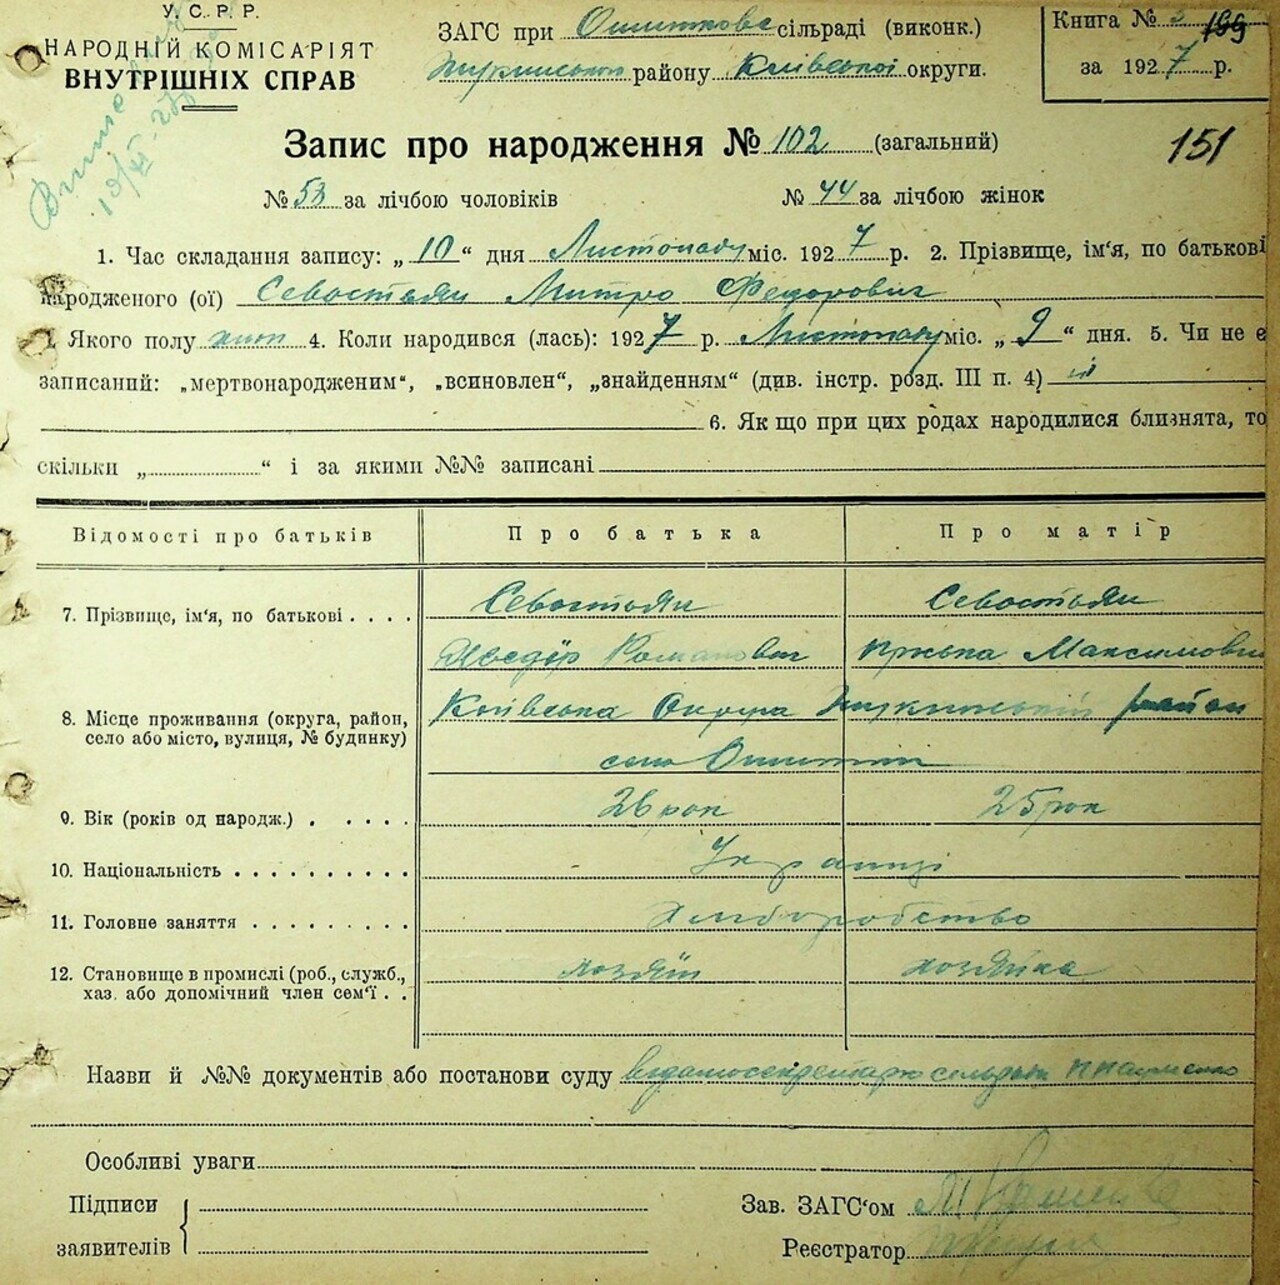 У. С. Р. Р.
НАРОДНІЙ КОМІСАРІЯТ
ВНУТРІШНІХ СПРАВ
ЗАГС при сільраді (виконк.)
району Київської округи.
Книга №
за 1927 р.
Запис про народження № 102 (загальний)
151
№ 58 за лічбою чоловіків № 44 за лічбою жінок
1. Час складання запису: „ 10 “ дня Листопаду міс. 1927 р. 2. Прізвище, ім‘я, по батькові
народженого (ої) Севостьян Митро Федорович
Якого полу 4. Коли народився (лась): 1927 р. Листопаду міс. „ 9 “ дня. 5. Чи не є
записаний: „мертвонародженим“, „всиновлен“, „знайденням“ (див. інстр. розд. III п. 4) ні
6. Як що при цих родах народилися близнята, то
скільки „ “ і за якими №№ записані
Відомості про батьків Про батька Про матір
7. Прізвище, ім‘я, по батькові . . . . Севостьян Севостьян
Романович Максимовна
8. Місце проживання (округа, район, Київська Округа район
село або місто, вулиця, № будинку) село
9. Вік (років од народж.) . . . . . 26 рок 25 рок
10. Національність . . . . . . . . . . Українці
11. Головне заняття . . . . . . . . . Хліборобство
12. Становище в промислі (роб., служб., хозяїн хозяйка
хаз. або допомічний член сем‘ї . .
Назви й №№ документів або постанови суду
Особливі уваги
Підписи
заявителів
Зав. ЗАГС‘ом
Реєстратор